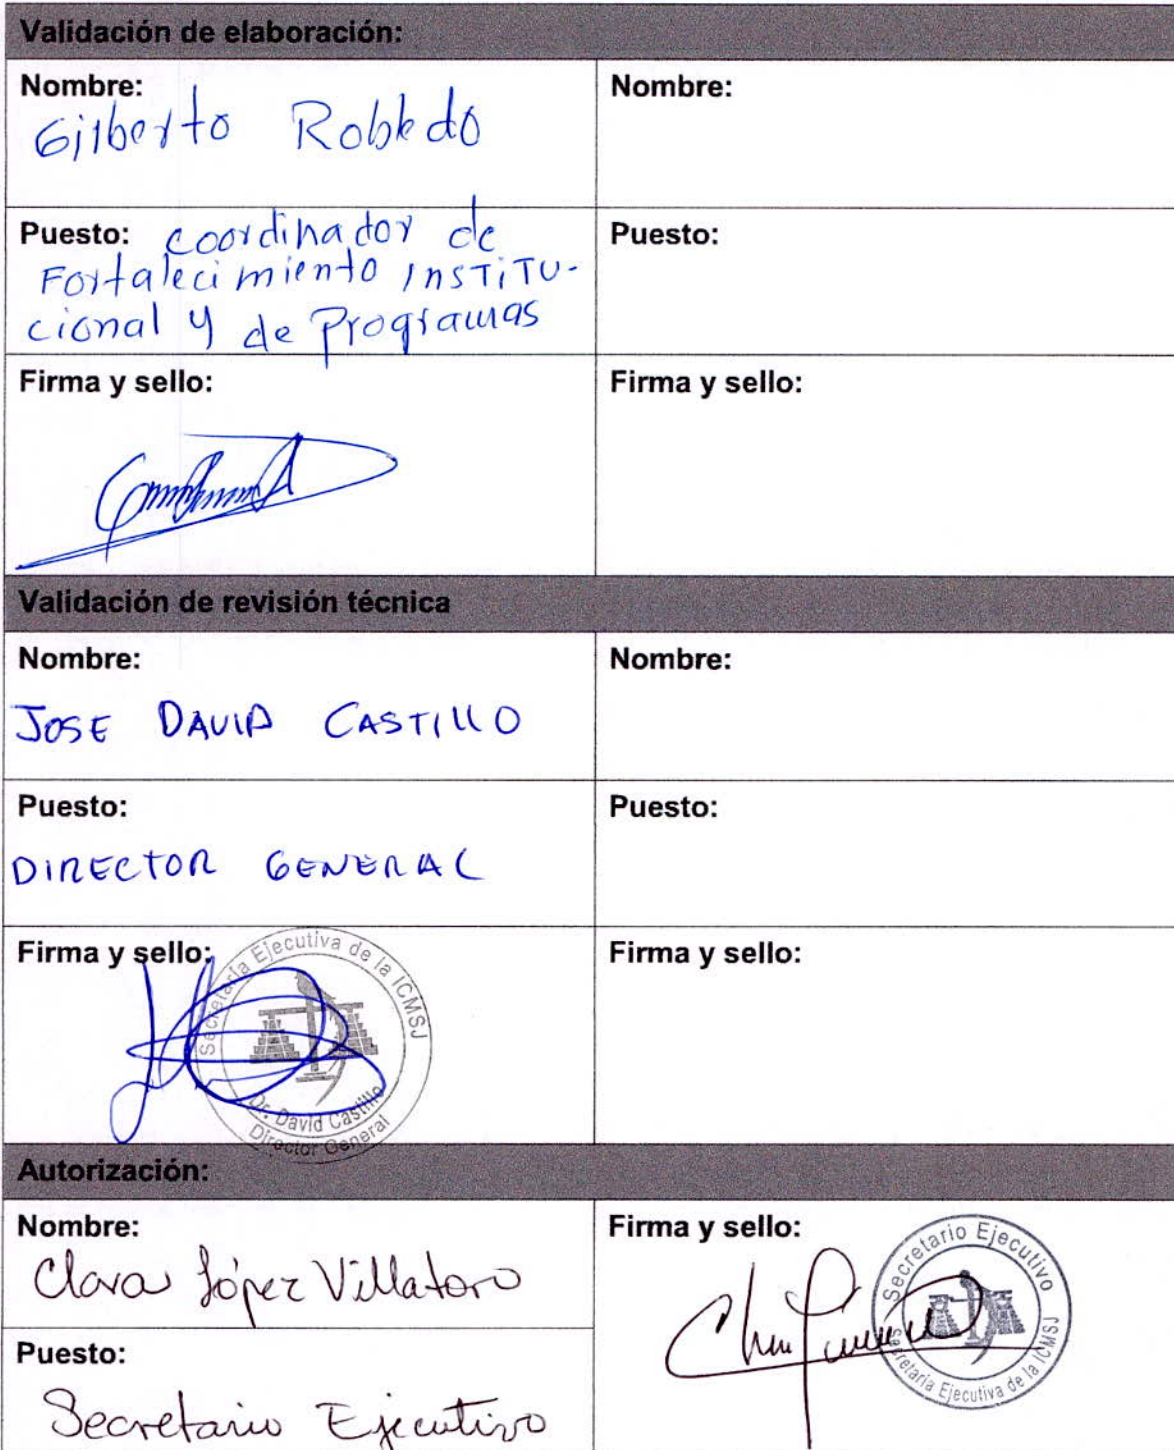 Validación de elaboración:
Nombre:
Gilberto Robledo
Nombre:
Puesto: coordinador de
Fortalecimiento Institu-
cional y de Programas
Puesto:
Firma y sello:
Firma y sello:
Validación de revisión técnica
Nombre:
JOSE DAVID CASTILLO
Nombre:
Puesto:
DIRECTOR GENERAL
Puesto:
Firma y sello:
Secretaría Ejecutiva de la ICMSJ
Dr. David Castillo
Director General
Firma y sello:
Autorización:
Nombre:
Clara López Villatoro
Puesto:
Secretario Ejecutivo
Firma y sello:
Secretario Ejecutivo
Secretaría Ejecutiva de la ICMSJ